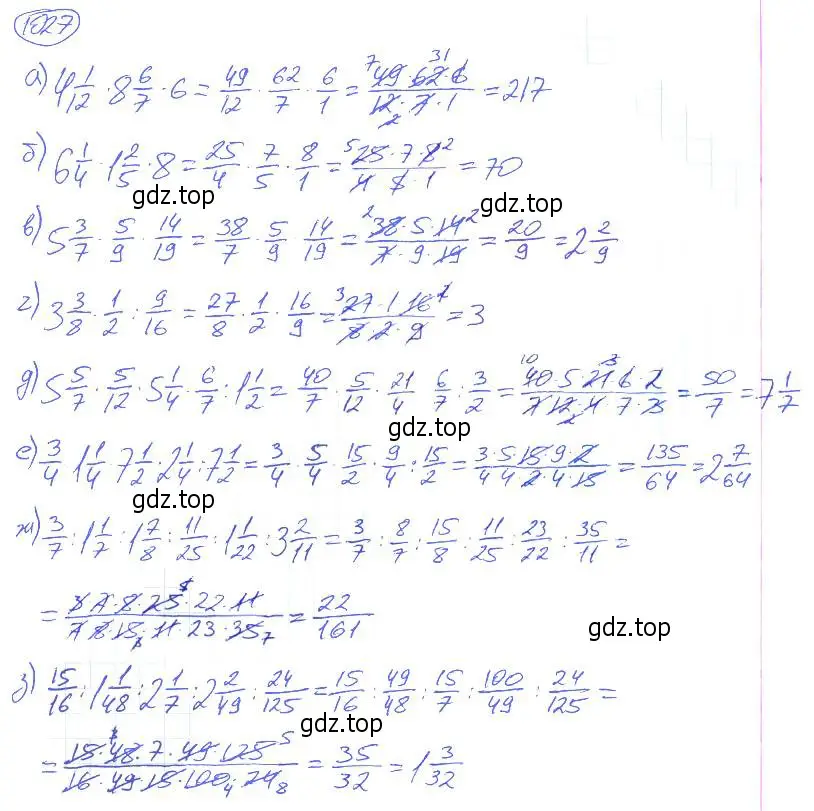 1027
а) 4 1/12 · 8 6/7 · 6 = 49/12 · 62/7 · 6/1 = 49 · 62 · 6 / 12 · 7 · 1 = 217
б) 6 1/4 · 1 2/5 · 8 = 25/4 · 7/5 · 8/1 = 25 · 7 · 8 / 4 · 5 · 1 = 70
gdz.top gdz.top
в) 5 3/7 · 5/9 · 14/19 = 38/7 · 5/9 · 14/19 = 38 · 5 · 14 / 7 · 9 · 19 = 20/9 = 2 2/9
г) 3 3/8 · 1/2 : 9/16 = 27/8 · 1/2 · 16/9 = 27 · 1 · 16 / 8 · 2 · 9 = 3
д) 5 5/7 · 5/12 · 5 1/4 · 6/7 : 1 1/2 = 40/7 · 5/12 · 21/4 · 6/7 : 3/2 = 40 · 5 · 21 · 6 · 2 / 7 · 12 · 4 · 7 · 3 = 50/7 = 7 1/7
gdz.top
е) 3/4 · 1 1/4 · 7 1/2 · 2 1/4 : 7 1/2 = 3/4 · 5/4 · 15/2 · 9/4 : 15/2 = 3 · 5 · 15 · 9 · 2 / 4 · 4 · 2 · 4 · 15 = 135/64 = 2 7/64
gdz.top
ж) 3/7 : 1 1/7 : 1 7/8 : 11/25 : 1 1/22 : 3 2/11 = 3/7 : 8/7 : 15/8 : 11/25 : 23/22 : 35/11 =
= 3 · 7 · 8 · 25 · 22 · 11 / 7 · 8 · 15 · 11 · 23 · 35 = 22/161
gdz.top
з) 15/16 : 1 1/48 : 2 1/7 : 2 2/49 : 24/125 = 15/16 : 49/48 : 15/7 : 100/49 : 24/125 =
gdz.top
= 15 · 48 · 7 · 49 · 125 / 16 · 49 · 15 · 100 · 24 = 35/32 = 1 3/32